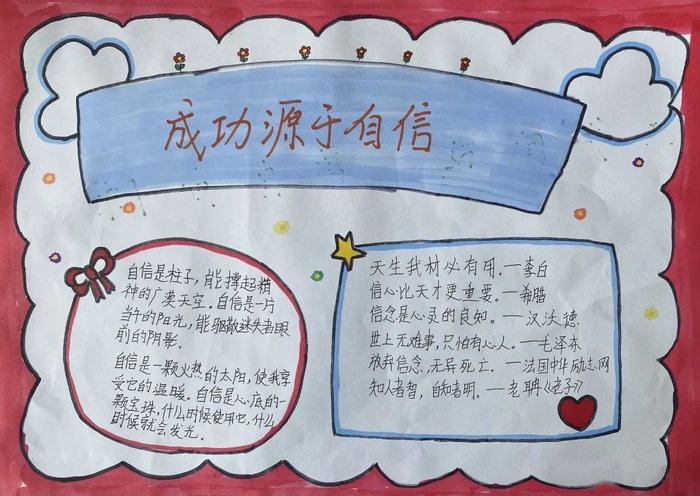 成功源于自信
自信是柱子，能撑起精
神的广漠天空。自信是一片
当午的阳光，能驱散迷失者眼
前的阴影。
自信是一颗火热的太阳，使我享
受它的温暖。自信是心底的一
颗宝珠，什么时候使用它，什么
时候就会发光。
天生我材必有用。—李白
信心比天才更重要。—希腊
信念是心灵的良知。—汉沃德
世上无难事，只怕有心人。—毛泽东
放弃信念，无异死亡。—法国中华励志网
知人者智，自知者明。—老聃《老子》